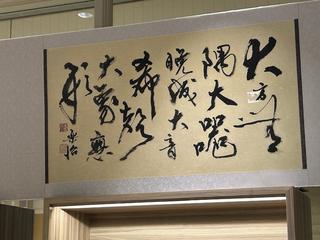 大方無
隅大器
晚成大音
希聲
大象無
形